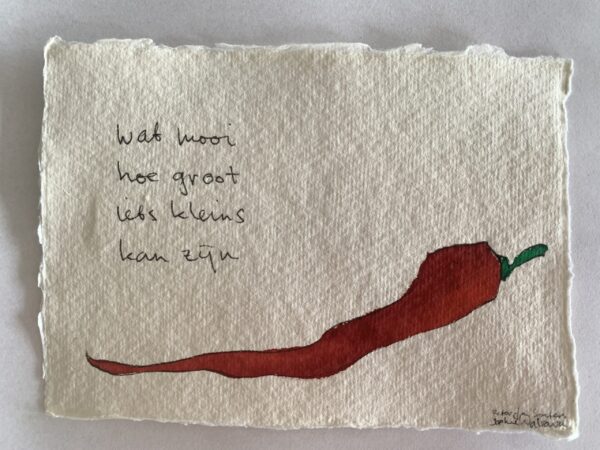 wat mooi
hoe groot
iets kleins
kan zijn